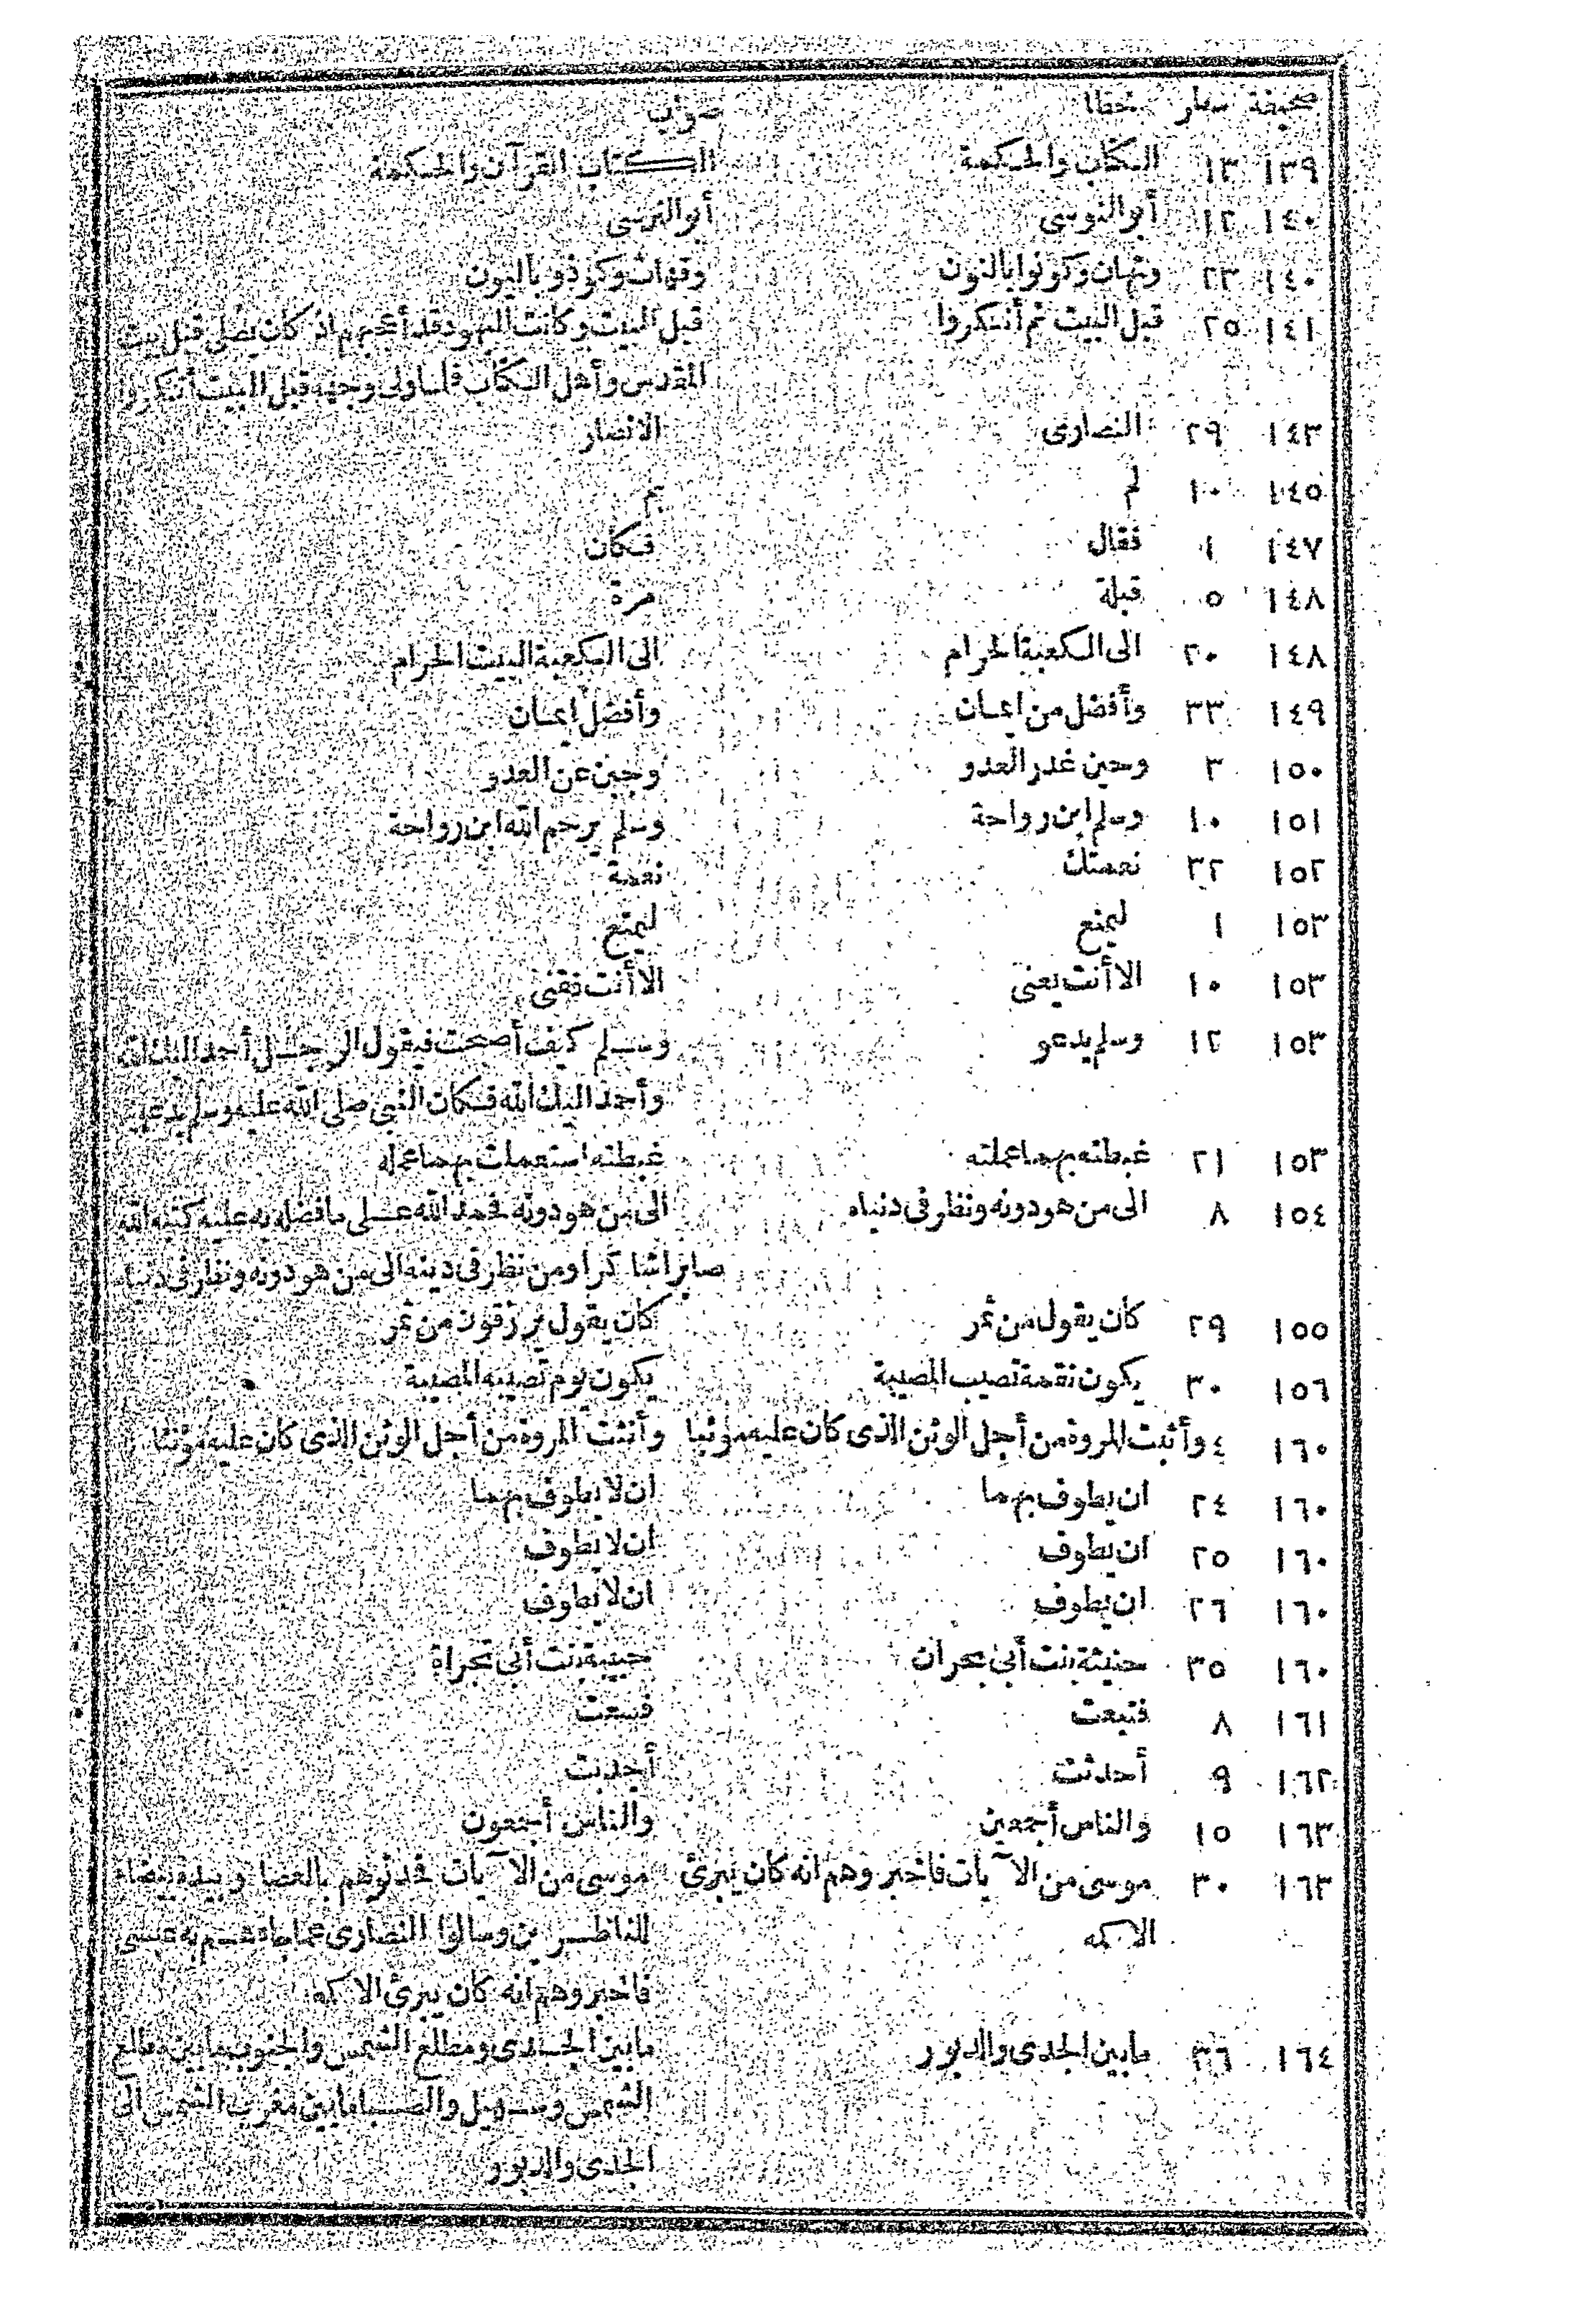 صحيفة سطر خطا صواب
١٣٩ ١٣ الكتاب والحكمة الكتاب القرآن والحكمة
١٤٠ ١٢ أبو النوسى أبو النرسى
١٤٠ ٢٣ وكونوا بالنون
١٤١ ٢٥ قبل البيت ثم أنكروا قبل البيت وكانت اليهود قد أعجبهم اذ كان يصلى قبل بيت
المقدس وأهل الكتاب فلما ولى وجهه قبل البيت أنكروا
١٤٣ ٢٩ النصارى الانصار
١٤٥ ١٠ لم
١٤٧ ١ فقال فكان
١٤٨ ٥ قبلة مرة
١٤٨ ٢٠ الى الكعبة الحرام الى الكعبة البيت الحرام
١٤٩ ٣٣ وأفضل من ايمان وأفضل ايمان
١٥٠ ٣ وحين غدر العدو وجبن عن العدو
١٥١ ١٠ وسلم ابن رواحة وسلم يرحم الله ابن رواحة
١٥٢ ٣٢ نعمتك نعمة
١٥٣ ١ ليمنع ليمتنع
١٥٣ ١٠ الا أنت يعنى الا أنت فقنى
١٥٣ ١٢ وسلم يدعو وسلم كيف أصبحت فيقول الرجل أحمد اليك الله
وأحمد اليك الله فكان النبى صلى الله عليه وسلم يدعو
١٥٣ ٢١ غبطته بهما عملته غبطته استعملت بهما عمله
١٥٤ ٨ الى من هو دونه ونظر فى دنياه الى من هو دونه فحمد الله على ما فضله به عليه كتبه الله
صابرا شاكرا ومن نظر فى دينه الى من هو دونه ونظر فى دنياه
١٥٥ ٢٩ كان يقول من ثمر كان يقول يرزقون من ثمر
١٥٦ ٣٠ يكون نقمة تصيب المصيبة يكون يوم تصيبه المصيبة
١٦٠ ٤ وأثبت المروة من أجل الوثن الذى كان عليه مؤثبا وأنثت المروة من أجل الوثن الذى كان عليه مؤنثا
١٦٠ ٢٤ ان يطوف بهما ان لا يطوف بهما
١٦٠ ٢٥ ان يطوف ان لا يطوف
١٦٠ ٢٦ ان يطوف ان لا يطوف
١٦٠ ٣٥ حنيثة بنت أبى بحران حبيبة بنت أبى تجراة
١٦١ ٨ فتبعت فسعت
١٦٢ ٩ أحدثت أجدبت
١٦٣ ١٥ والناس أجمعين والناس أجمعون
١٦٣ ٣٠ موسى من الآيات فاخبروهم انه كان يبرئ موسى من الآيات فحدثوهم بالعصا وبيده بيضاء
الاكمه للناظرين وسالوا النصارى عما جاءهم به عيسى
فاخبروهم انه كان يبرئ الاكمه
١٦٤ ٣٦ ما بين الجدى والدبور ما بين الجدى ومطلع الشمس والجنوب ما بين مطلع
الشمس وسهيل والصبا ما بين مغرب الشمس الى
الجدى والدبور